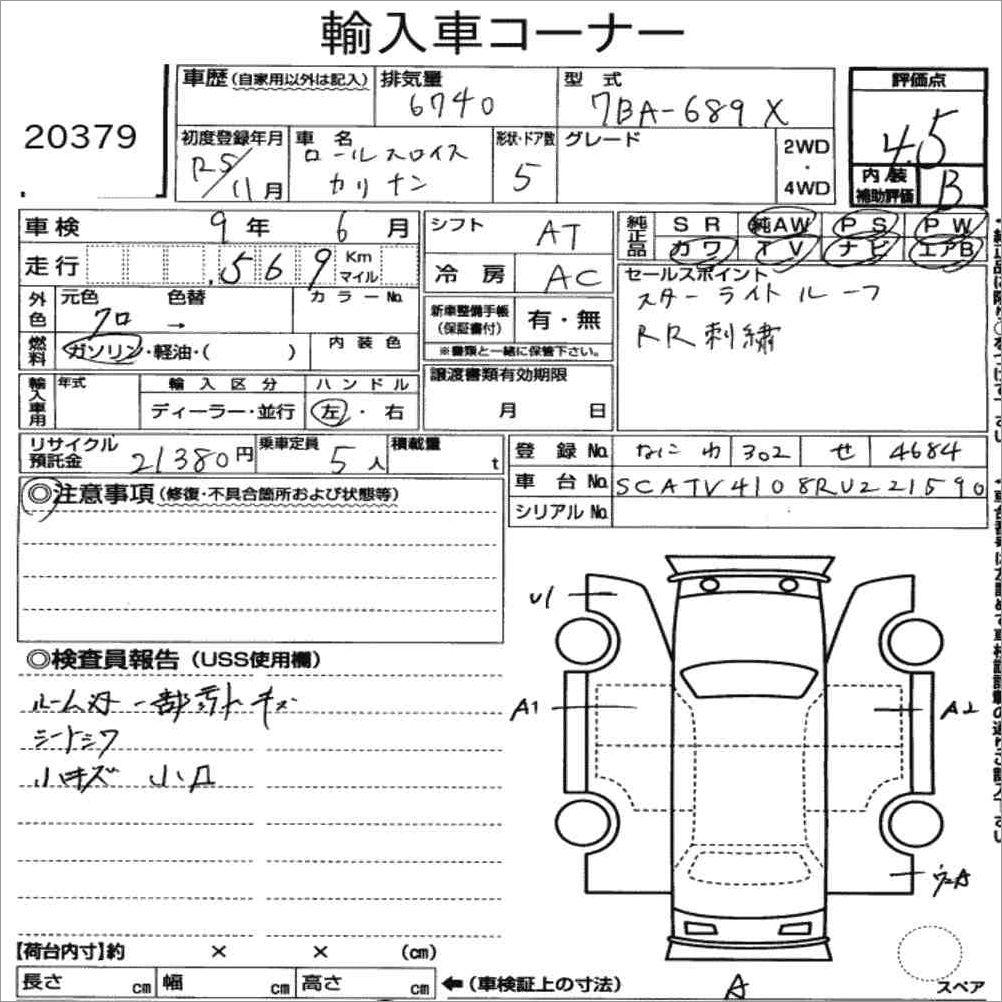 輸入車コーナー
20379
車歴 (自家用以外は記入)
排気量
6740
型 式
7BA-689X
評価点
4.5
初度登録年月
R5/11月
車 名
ロールスロイス
カリナン
形状・ドア数
5
グレード
2WD
・
4WD
内 装
補助評価
B
車検 9 年 6 月
シフト AT
純正品
SR 純AW PS PW
カワ TV ナビ エアB
走行 569 Km マイル
冷 房 AC
セールスポイント
スターライトルーフ
RR刺繍
外色
元色 色替 カラーNo.
クロ →
新車整備手帳
(保証書付)
有・無
※書類と一緒に保管下さい。
燃料
ガソリン・軽油・( )
内 装 色
輸入車用
年式
輸 入 区 分
ハ ン ド ル
ディーラー・並行
左・右
譲渡書類有効期限
月 日
リサイクル
預託金
21380円
乗車定員 5人
積載量 t
登 録 No. なにわ 302 せ 4684
車 台 No. SCATV4108RU221590
シリアル No.
◎注意事項 (修復・不具合箇所および状態等)
◎検査員報告 (USS使用欄)
シートシワ
小キズ
U1
A1
A2
A
【荷台内寸】約 × × (cm)
長さ cm 幅 cm 高さ cm
←(車検証上の寸法)
スペア